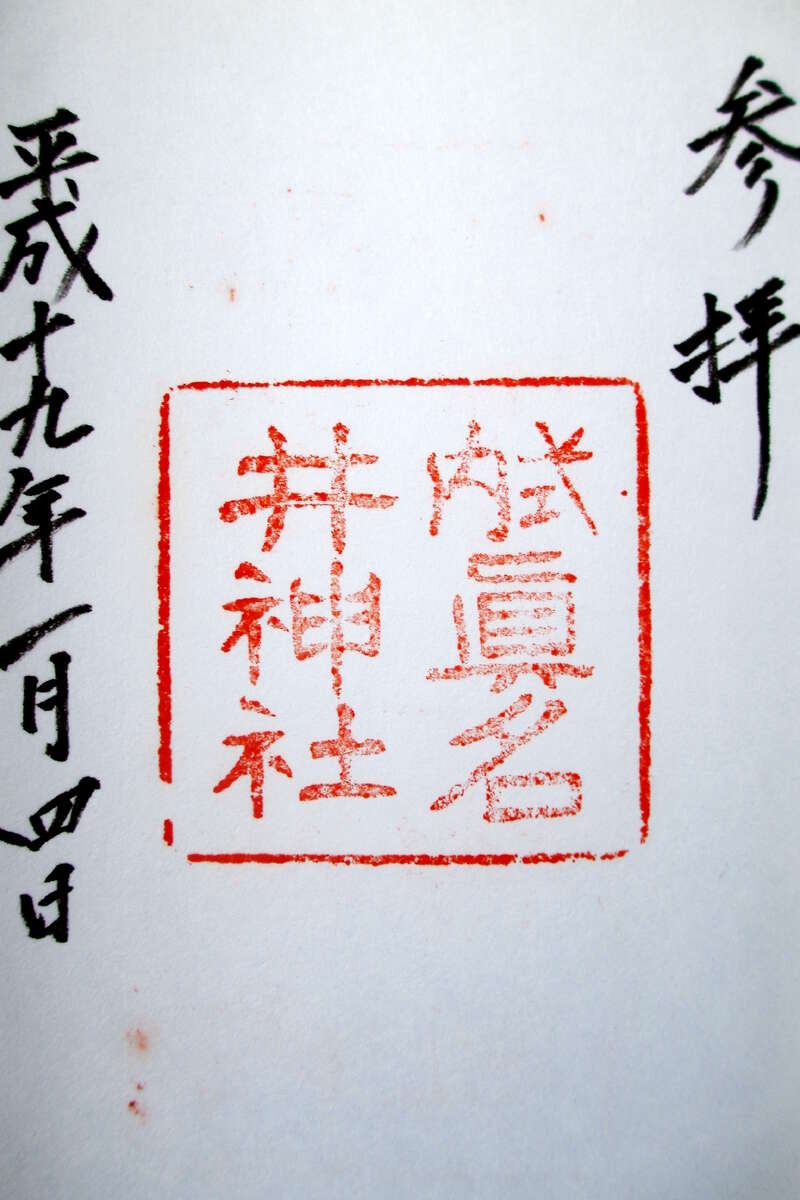 参拝
式内眞名
井神社
平成十九年一月四日